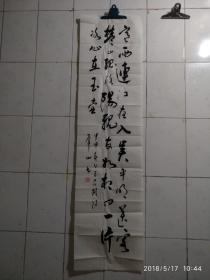 寒雨连江夜入吴平明送客
楚山孤洛阳亲友如相问一片
冰心在玉壶
2018/5/17 10:44